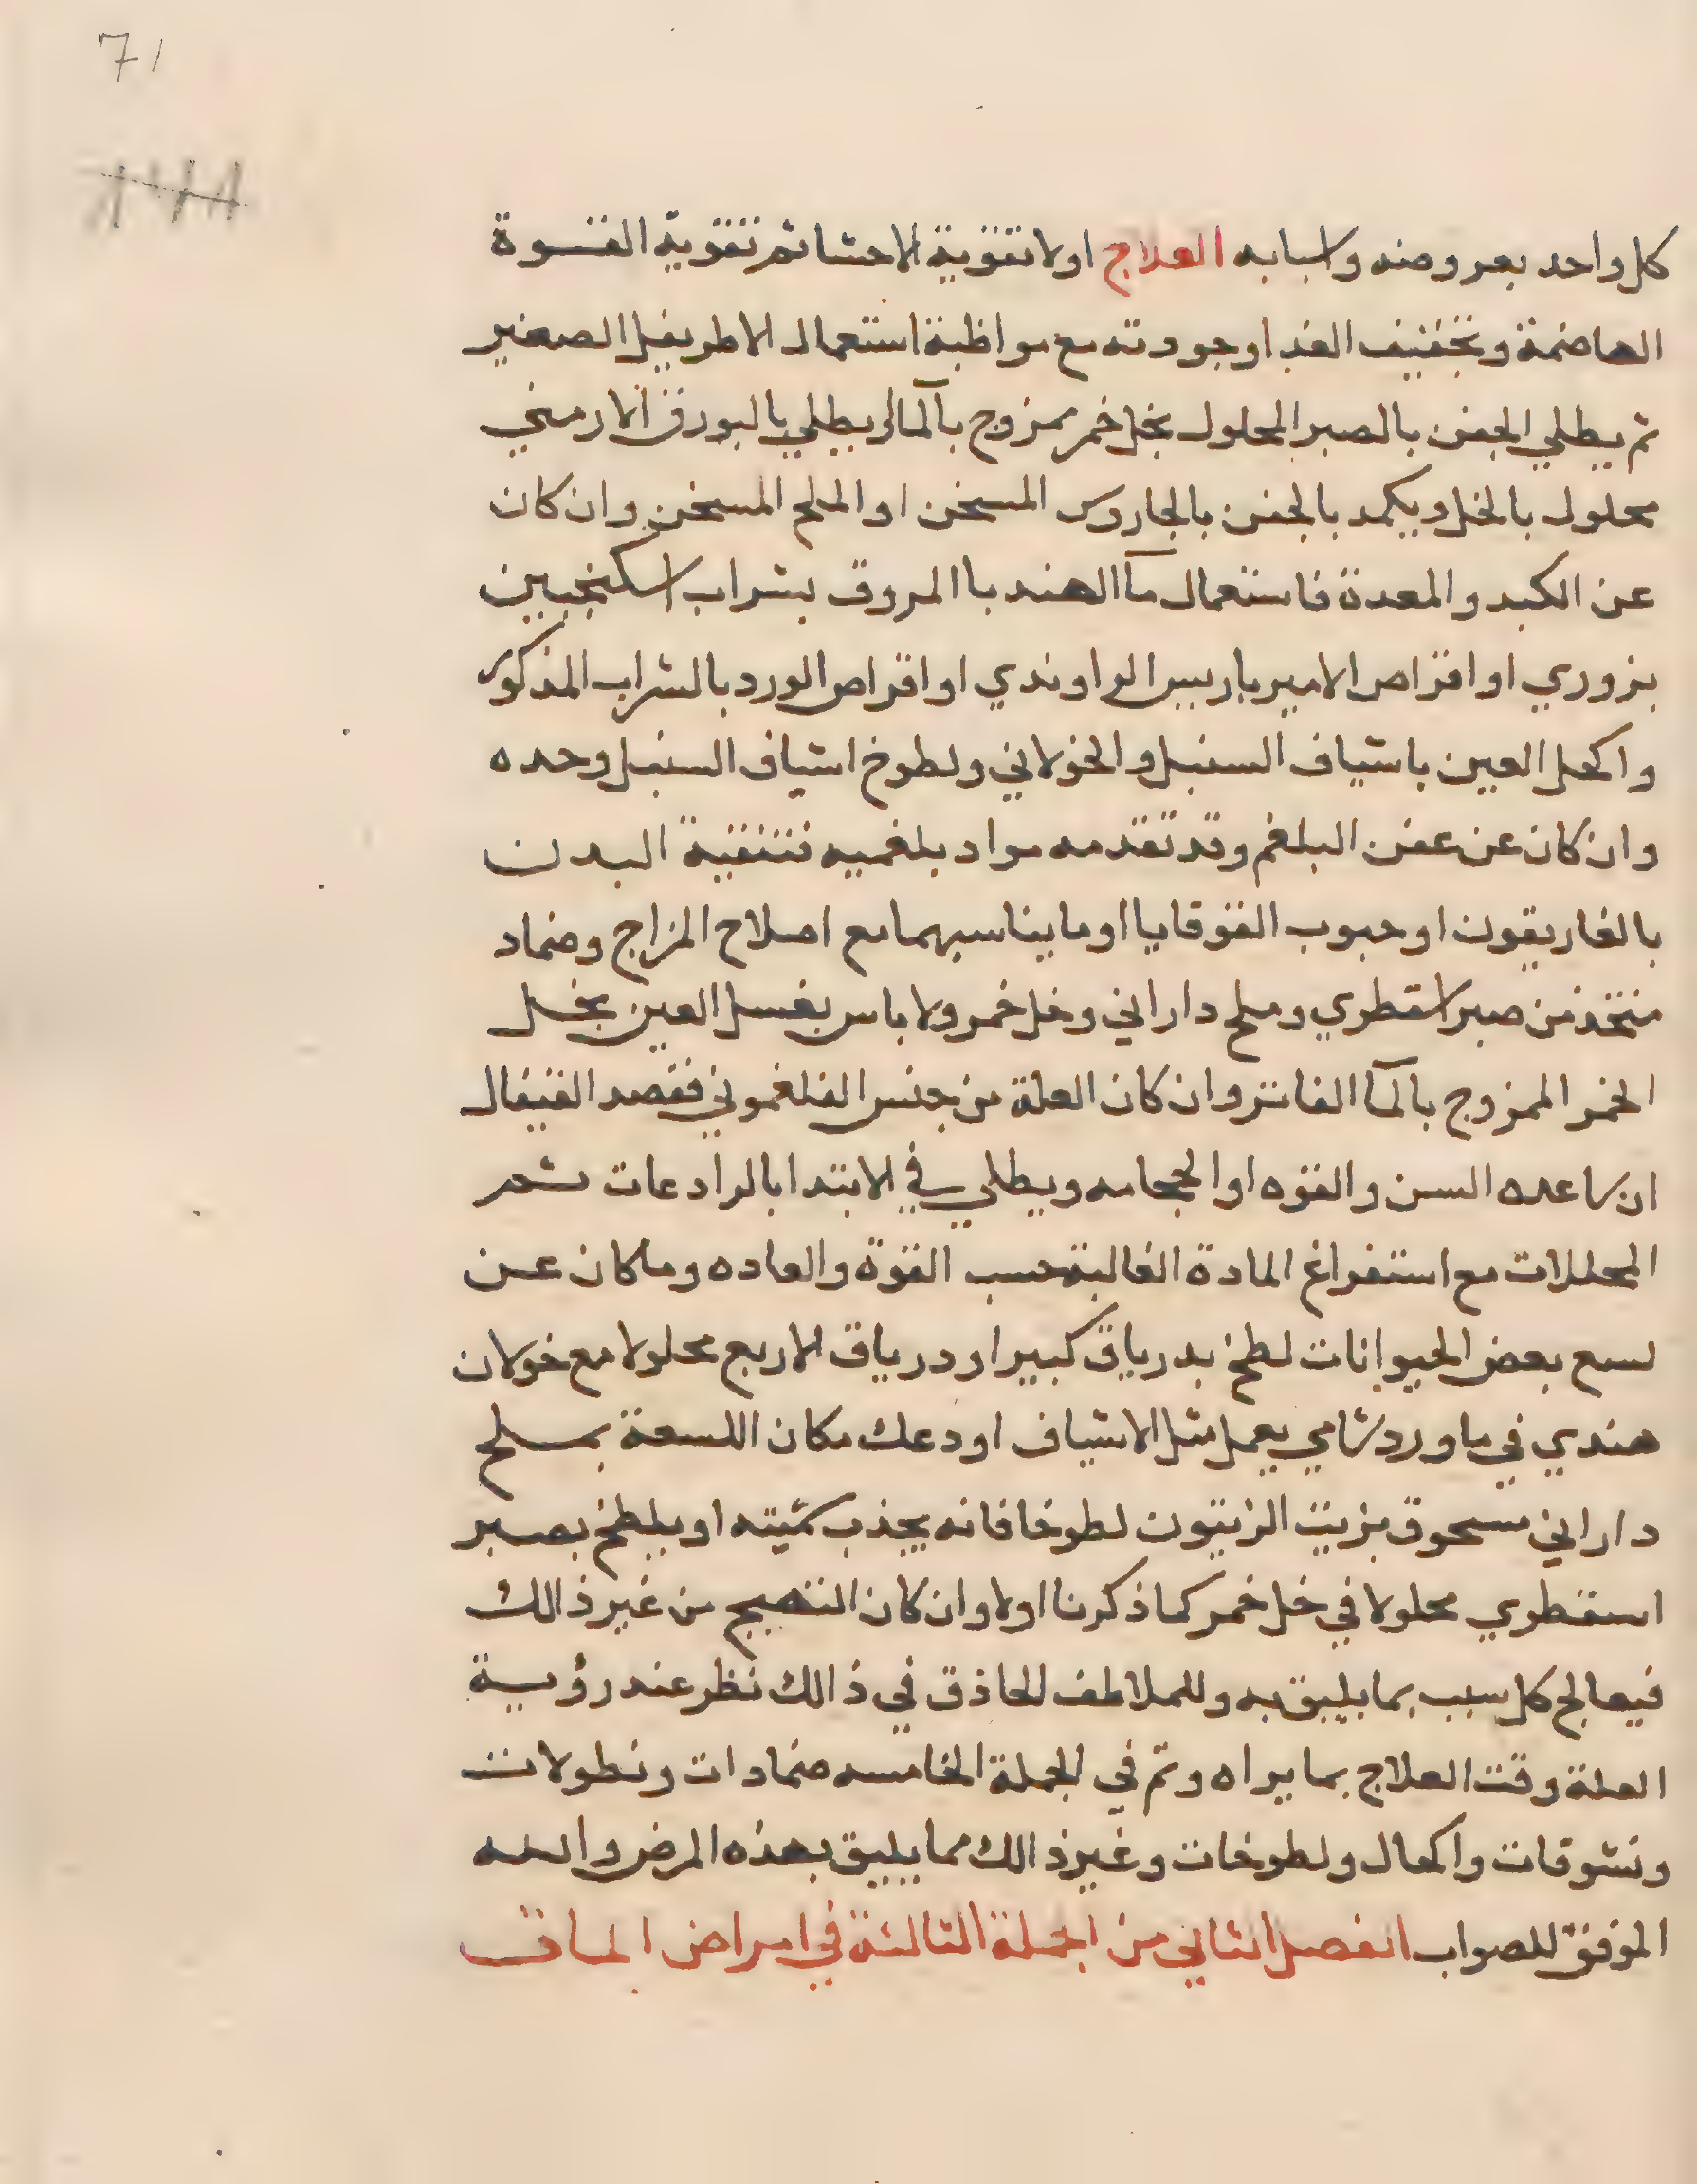 71
كل واحد بعروضه واسبابه العلاج اولا تقوية الاحشا ثم تقوية القوة
الهاضمة وتخفيف الغدا وجودته مع مواظبة استعمال الاطريفل الصغير
ثم يطلي الجفن بالصبر المحلول بخل خمر ممزوج بالمآ او يطلي بالبورق الارمني
محلول بالخل ويكمد بالجفن بالجاروس المسخن او الملح المسخن وان كان
عن الكبد والمعدة فاستعمال مآ الهندبا المروق بشراب اسكنجبين
بزوري او اقراص الامير باريس الراوندي او اقراص الورد بالشراب المذكور
واكحل العين باشياف السنبل والخولاني ولطوخ اشياف السنبل وحده
وان كان عن عفن البلغم وقد تقدمه مواد بلغميه فتنقية البدن
بالغاريقون او حبوب القوقايا او ما يناسبهما مع اصلاح المزاج وضماد
متخذ من صبر اسقطري وملح داراني وخل خمر ولا باس بغسل العين بخل
الخمر الممزوج بالمآ الفاتر وان كان العلة من جنس الفلغموني ففصد القيفال
ان ساعده السن والقوه او الحجامه ويطلي في الابتدا بالرادعات ثم
المحللات مع استفراغ المادة الغالبة حسب القوة والعاده وما كان عن
لسع بعض الحيوانات لطخ بدرياق كبير او درياق الاربع محلولا مع خولان
هندي في ماورد شامي يعمل مثل الاشياف او دعك مكان اللسعة بملح
داراني مسحوق بزيت الزيتون لطوخا فانه يجذب كميته او يلطخ بصبر
اسقطري محلولا في خل خمر كما ذكرنا اولا وان كان التهبج من غير ذالك
فيعالج كل سبب بما يليق به وللملاطف الحاذق في ذالك نظر عند رؤية
العلة وقت العلاج بما يراه وثم في الجملة الخامسه ضمادات ونطولات
ونشوقات واكحال ولطوخات وغير ذالك مما يليق بهذه المرض والله
الموفق للصواب الفصل الثاني من الجملة الثالثة في امراض الماق